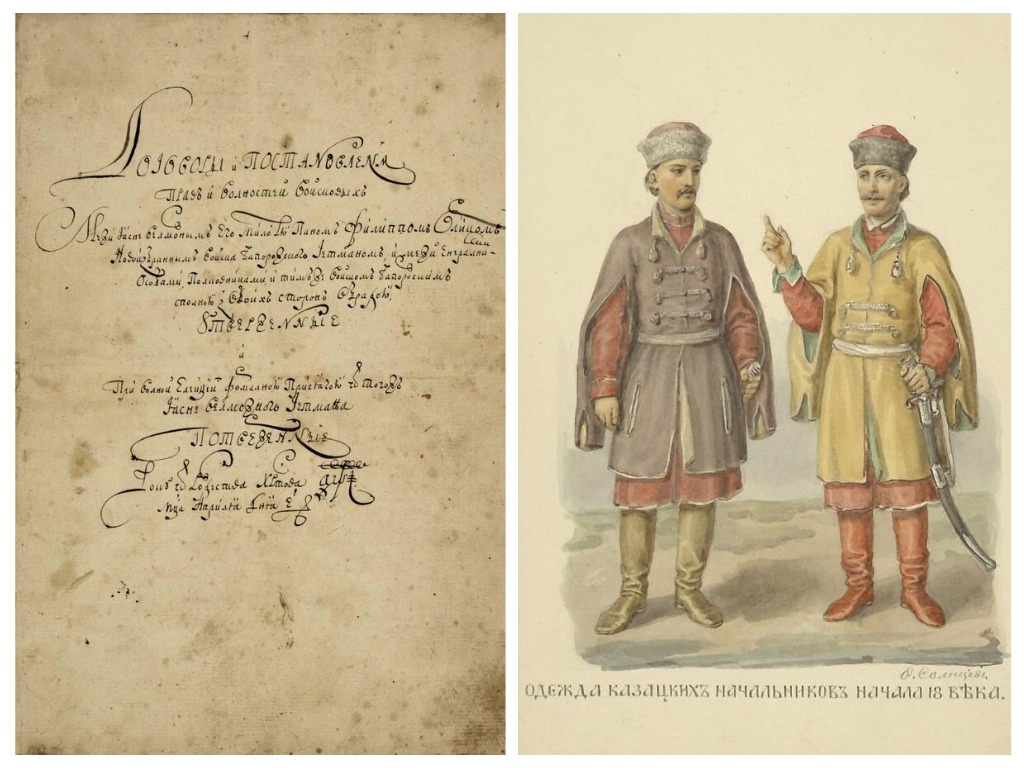 Договоры и ПОСТАНОВЛЕНЯ
Правъ и волностей войсковыхъ
Межи Ясне велможнымъ Его млстю Паномъ Филиппомъ Орликомъ
Новоизбраннымъ войска Запорожского Гетманомъ, и межи Енералними
Особами, Полковниками и тимъ же войскомъ Запорожскимъ
сполною з обоихъ сторонъ обрадою,
УТВЕРЖЕННЫЕ
и
При волной Елекции формалною Присягою от тогожъ
Ясне велможного Гетмана
ПОТВЕРЖЕННЫЕ
Року от Рождества Христова
мця Априля дня е
Ѳ. Солнцевъ.
ОДЕЖДА КАЗАЦКИХЪ НАЧАЛЬНИКОВЪ НАЧАЛА 18 ВѢКА.